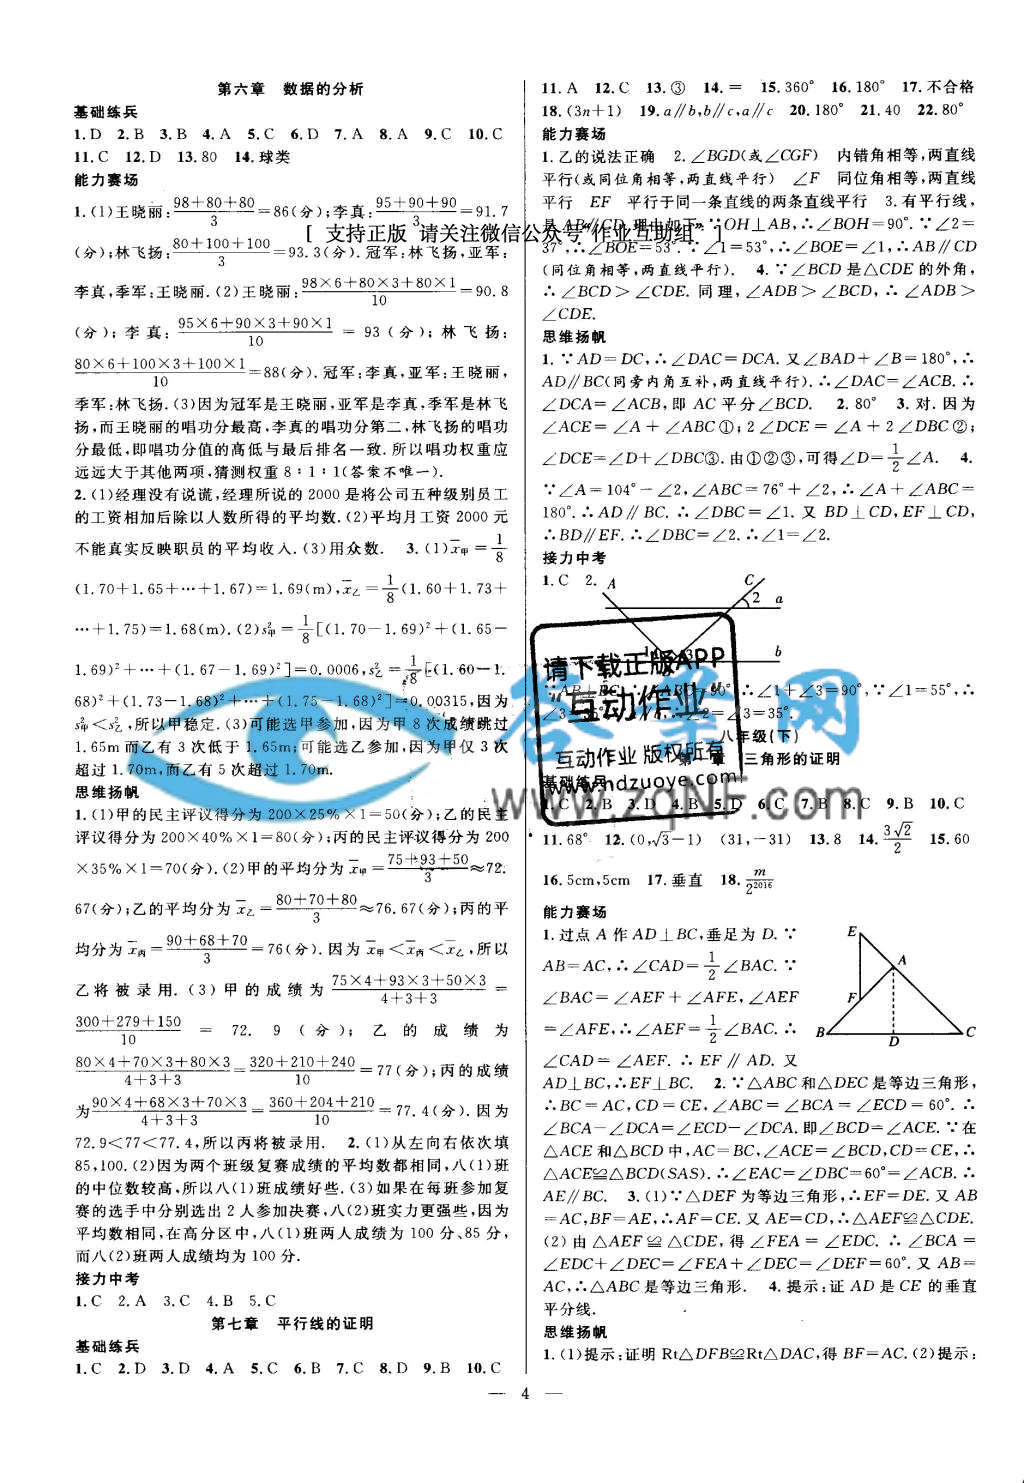 第六章 数据的分析
基础练兵
1.D 2.B 3.B 4.A 5.C 6.D 7.A 8.A 9.C 10.C
11.C 12.D 13.80 14.球类
能力赛场
1.(1)王晓丽:(98+80+80)/3=86(分);李真:(95+90+90)/3=91.7
[ 支持正版 请关注微信公众号"作业互助组" ]
(分);林飞扬:(80+100+100)/3=93.3(分).冠军:林飞扬,亚军:
李真,季军:王晓丽.(2)王晓丽:(98×6+80×3+80×1)/10=90.8
(分);李真:(95×6+90×3+90×1)/10=93(分);林飞扬:
(80×6+100×3+100×1)/10=88(分).冠军:李真,亚军:王晓丽,
季军:林飞扬.(3)因为冠军是王晓丽,亚军是李真,季军是林飞
扬,而王晓丽的唱功分最高,李真的唱功分第二,林飞扬的唱功
分最低,即唱功分值的高低与最后排名一致.所以唱功权重应
远远大于其他两项,猜测权重8:1:1(答案不唯一).
2.(1)经理没有说谎,经理所说的2000是将公司五种级别员工
的工资相加后除以人数所得的平均数.(2)平均月工资2000元
不能真实反映职员的平均收入.(3)用众数. 3.(1)x̄甲=1/8
(1.70+1.65+…+1.67)=1.69(m),x̄乙=1/8(1.60+1.73+
…+1.75)=1.68(m).(2)s²甲=1/8[(1.70-1.69)²+(1.65-
1.69)²+…+(1.67-1.69)²]=0.0006,s²乙=1/8[(1.60-1.
68)²+(1.73-1.68)²+…+(1.75-1.68)²]=0.00315,因为
s²甲<s²乙,所以甲稳定.(3)可能选甲参加,因为甲8次成绩跳过
1.65m而乙有3次低于1.65m;可能选乙参加,因为甲仅3次
超过1.70m,而乙有5次超过1.70m.
思维扬帆
1.(1)甲的民主评议得分为200×25%×1=50(分);乙的民主
评议得分为200×40%×1=80(分);丙的民主评议得分为200
×35%×1=70(分).(2)甲的平均分为x̄甲=(75+93+50)/3≈72.
67(分);乙的平均分为x̄乙=(80+70+80)/3≈76.67(分);丙的平
均分为x̄丙=(90+68+70)/3=76(分).因为x̄甲<x̄丙<x̄乙,所以
乙将被录用.(3)甲的成绩为(75×4+93×3+50×3)/(4+3+3)=
(300+279+150)/10=72.9(分);乙的成绩为
(80×4+70×3+80×3)/(4+3+3)=(320+210+240)/10=77(分);丙的成绩
为(90×4+68×3+70×3)/(4+3+3)=(360+204+210)/10=77.4(分).因为
72.9<77<77.4,所以丙将被录用. 2.(1)从左向右依次填
85,100.(2)因为两个班级复赛成绩的平均数都相同,八(1)班
的中位数较高,所以八(1)班成绩好些.(3)如果在每班参加复
赛的选手中分别选出2人参加决赛,八(2)班实力更强些,因为
平均数相同,在高分区中,八(1)班两人成绩为100分、85分,
而八(2)班两人成绩均为100分.
接力中考
1.C 2.A 3.C 4.B 5.C
第七章 平行线的证明
基础练兵
1.C 2.D 3.D 4.A 5.C 6.B 7.D 8.D 9.B 10.C
11.A 12.C 13.③ 14.= 15.360° 16.180° 17.不合格
18.(3n+1) 19.a∥b,b∥c,a∥c 20.180° 21.40 22.80°
能力赛场
1.乙的说法正确 2.∠BGD(或∠CGF) 内错角相等,两直线
平行(或同位角相等,两直线平行) ∠F 同位角相等,两直线
平行 EF 平行于同一条直线的两条直线平行 3.有平行线,
是AB∥CD.理由如下:∵OH⊥AB,∴∠BOH=90°.∵∠2=
37°,∴∠BOE=53°.∵∠1=53°,∴∠BOE=∠1,∴AB∥CD
(同位角相等,两直线平行). 4.∵∠BCD是△CDE的外角,
∴∠BCD>∠CDE.同理,∠ADB>∠BCD,∴∠ADB>
∠CDE.
思维扬帆
1.∵AD=DC,∴∠DAC=DCA.又∠BAD+∠B=180°,∴
AD∥BC(同旁内角互补,两直线平行).∴∠DAC=∠ACB.∴
∠DCA=∠ACB,即AC平分∠BCD. 2.80° 3.对.因为
∠ACE=∠A+∠ABC①;2∠DCE=∠A+2∠DBC②;
∠DCE=∠D+∠DBC③.由①②③,可得∠D=1/2∠A. 4.
∵∠A=104°-∠2,∠ABC=76°+∠2,∴∠A+∠ABC=
180°.∴AD∥BC.∴∠DBC=∠1.又BD⊥CD,EF⊥CD,
∴BD∥EF.∴∠DBC=∠2.∴∠1=∠2.
接力中考
1.C 2.
A C 2 a
1 3 b
∵AB⊥BC,∴∠ABC=90°,∴∠1+∠3=90°,∵∠1=55°,∴
∠3=35° ∠2=∠3=35°.
请下载正版APP
"互动作业"
互动作业 版权所有
www.hdzuoye.com
答案网
www.zqnf.com
八年级(下)
第一章 三角形的证明
基础练兵
1.C 2.B 3.D 4.B 5.D 6.C 7.B 8.C 9.B 10.C
11.68° 12.(0,√3-1) (31,-31) 13.8 14.3√2/2 15.60
16.5cm,5cm 17.垂直 18.m/2²⁰¹⁶
能力赛场
1.过点A作AD⊥BC,垂足为D.∵
AB=AC,∴∠CAD=1/2∠BAC.∵
∠BAC=∠AEF+∠AFE,∠AEF
=∠AFE,∴∠AEF=1/2∠BAC.∴
∠CAD=∠AEF.∴EF∥AD.又
E A F B D C
AD⊥BC,∴EF⊥BC. 2.∵△ABC和△DEC是等边三角形,
∴BC=AC,CD=CE,∠ABC=∠BCA=∠ECD=60°.∴
∠BCA-∠DCA=∠ECD-∠DCA.即∠BCD=∠ACE.∵在
△ACE和△BCD中,AC=BC,∠ACE=∠BCD,CD=CE,∴
△ACE≌△BCD(SAS).∴∠EAC=∠DBC=60°=∠ACB.∴
AE∥BC. 3.(1)∵△DEF为等边三角形,∴EF=DE.又AB
=AC,BF=AE,∴AF=CE.又AE=CD,∴△AEF≌△CDE.
(2)由△AEF≌△CDE,得∠FEA=∠EDC.∴∠BCA=
∠EDC+∠DEC=∠FEA+∠DEC=∠DEF=60°.又AB=
AC,∴△ABC是等边三角形. 4.提示:证AD是CE的垂直
平分线.
思维扬帆
1.(1)提示:证明Rt△DFB≌Rt△DAC,得BF=AC.(2)提示:
— 4 —